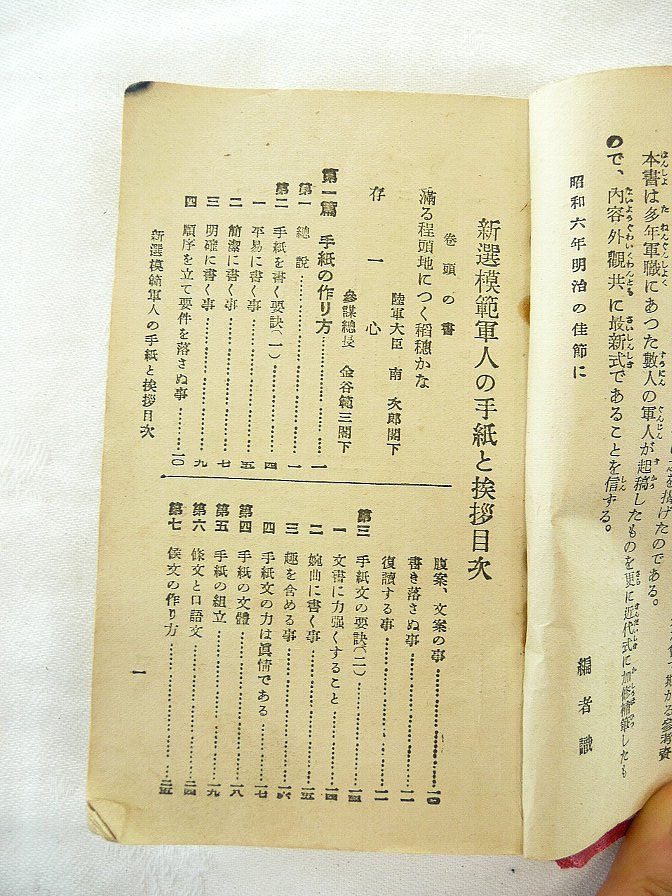 を揚げたのである。
本書は多年軍職にあつた數人の軍人が起稿したものを更に近代式に加修補筆したも
ので、内容外觀共に最新式であることを信ずる。
昭和六年明治の佳節に
編者識
新選模範軍人の手紙と挨拶目次
卷頭の書
滿る程頭地につく稻穗かな
陸軍大臣 南 次郎閣下
存一心
參謀總長 金谷範三閣下
第一篇 手紙の作り方……一
第一 總說……一
第二 手紙を書く要訣(一)……四
一 平易に書く事……五
二 簡潔に書く事……七
三 明確に書く事……九
四 順序を立て要件を落さぬ事……一〇
腹案、文案の事……一〇
書き落さぬ事……一一
復讀する事……一二
第三 手紙文の要訣(二)……一四
一 文書に力强くすること……一四
二 婉曲に書く事……一五
三 趣を含める事……一六
四 手紙文の力は眞情である……一七
第四 手紙の文體……一八
第五 手紙の組立……一九
第六 條文と口語文……二四
第七 候文の作り方……二五
新選模範軍人の手紙と挨拶目次
一